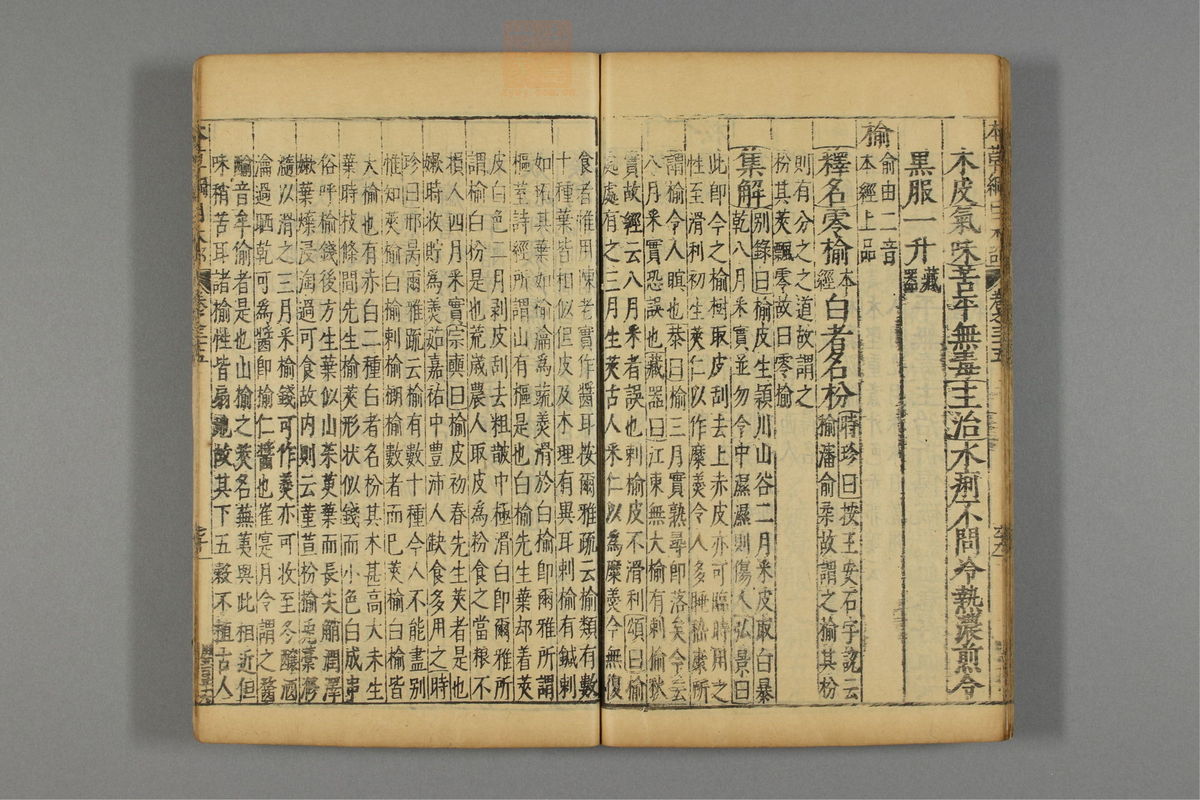 木皮氣味苦平無毒主治水痢不問冷熱濃煎令
黑服一升藏器
榆俞由二音本經上品
釋名零榆本經白者名枌時珍曰按王安石字說云榆瀋俞柔故謂之榆其枌
則有分之之道故謂之枌其莢飄零故曰零榆
集解別錄曰榆皮生潁川山谷二月采皮取白暴乾八月采實並勿令中濕濕則傷人弘景曰
此即今之榆樹取皮刮去上赤皮亦可臨時用之
性至滑利初生莢仁以作糜羹令人多睡嵇康所
謂榆令人瞑也恭曰榆三月實熟尋即落矣今云
八月采實恐誤也藏器曰江東無大榆有刺榆秋
實故經云八月采者誤也刺榆皮不滑利頌曰榆
處處有之三月生莢古人采仁以為糜羹今無復
食者惟用陳老實作醬耳按爾雅疏云榆類有數
十種葉皆相似但皮及木理有異耳刺榆有鍼刺
如柘其葉如榆瀹為蔬羹滑於白榆即爾雅所謂
樞荎詩經所謂山有樞是也白榆先生葉却著莢
皮白色二月剥去粗皷中極滑白即爾雅所
謂榆白枌是也荒歲農人取皮為粉食之當粮不
損人四月采實宗奭曰榆皮初春先生莢者是也
嫩時收貯為羹茹嘉祐中豐沛人缺食多用之時
珍曰邢昺爾雅疏云榆有數十種今人不能盡別
惟知莢榆白榆刺榆榔榆數者而已莢榆白榆皆
大榆也有赤白二種白者名枌其木甚高大未生
葉時枝條間先生榆莢形狀似錢而小色白成串
俗呼榆錢後方生葉似山茱萸葉而長尖䚎潤澤
嫩葉煠浸淘過可食故内則云菫荁枌榆免薧滫
瀡以滑之三月采榆錢可作羹亦可收至冬釀酒
瀹過晒乾可為醬即榆仁醬也崔寔月令謂之䤅
䤅音牟偷者是也山榆之莢名蕪荑與此相近但
味稍苦耳諸榆性皆扇地故其下五穀不植古人